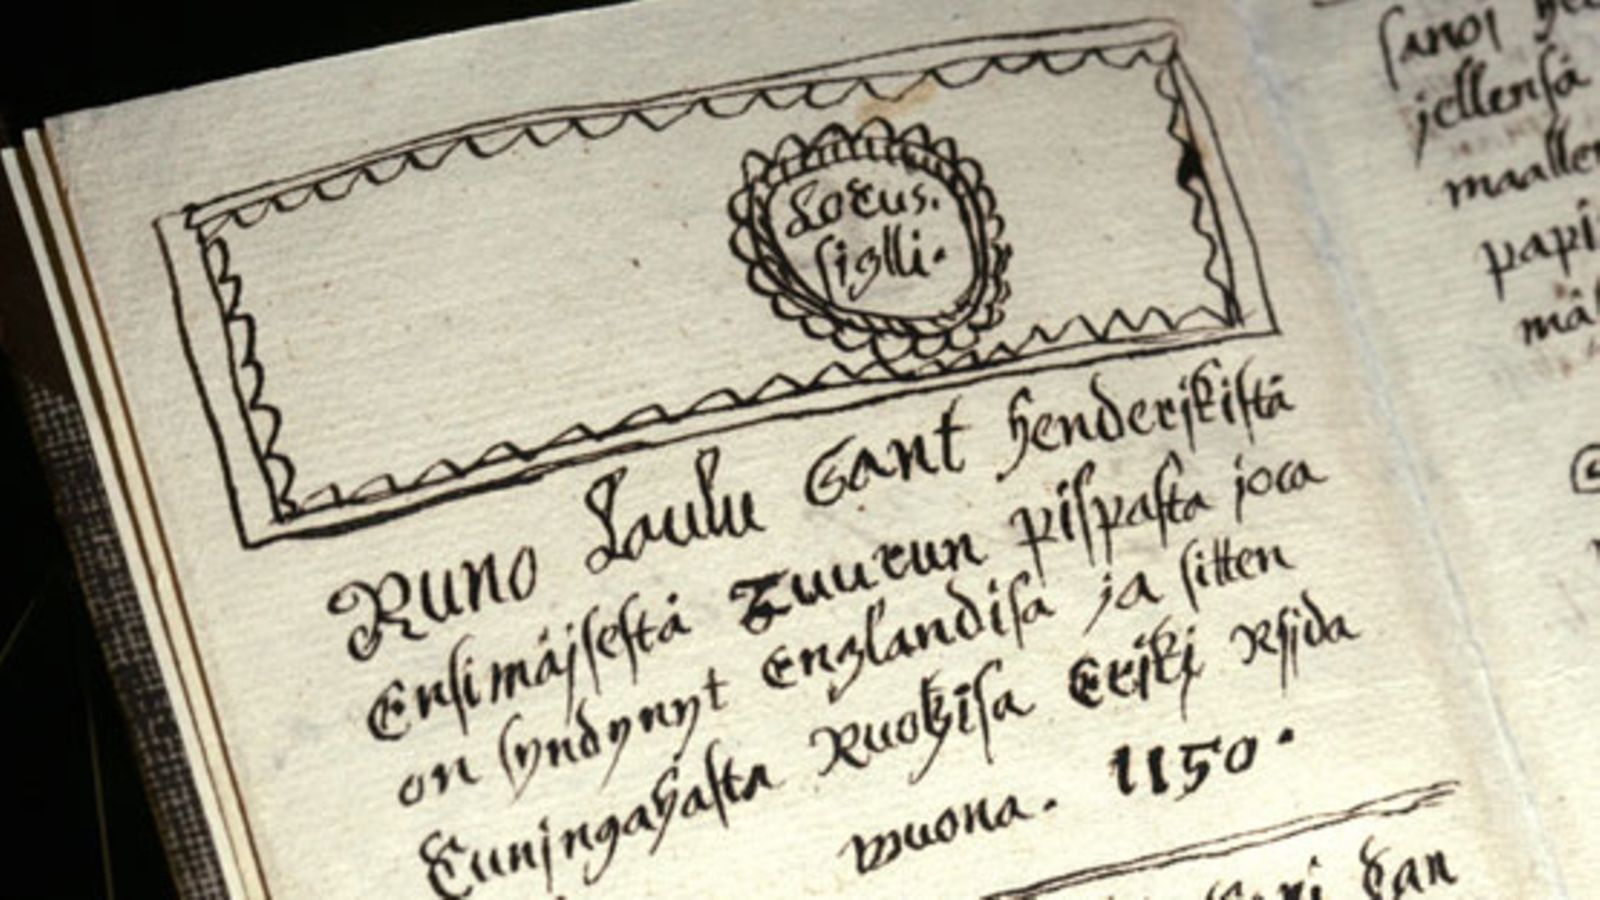 Locus.
siglli.
Runo Laulu Sant henderjkistå
Ensimåjsestå Tuurun pispasta joca
on syndynyt Englandisa ja sitten
Cuningahasta Ruotzisa Erjkj
muona. 1150.
sanoi
jellenså